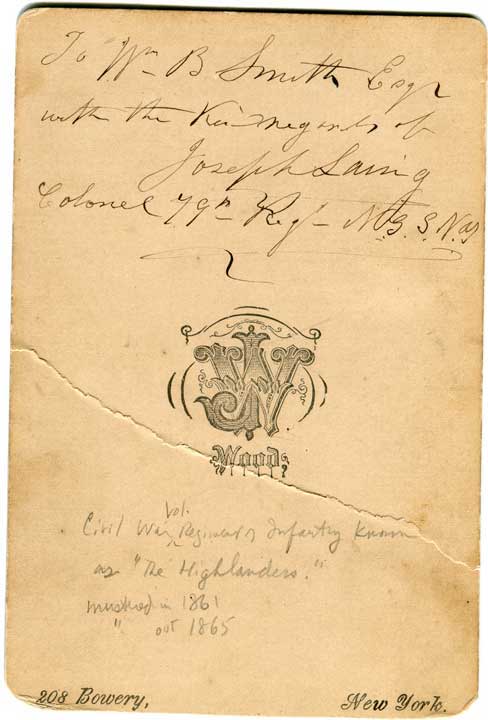 To Wm B Smith Esqr
with the Kind regards of
Joseph Laing
Colonel 79th Regt N.G.S.N.Y
JW
Wood.
Vol.
Civil War Regiment of Infantry known
as "The Highlanders."
mustered in 1861
" out 1865
208 Bowery, New York.